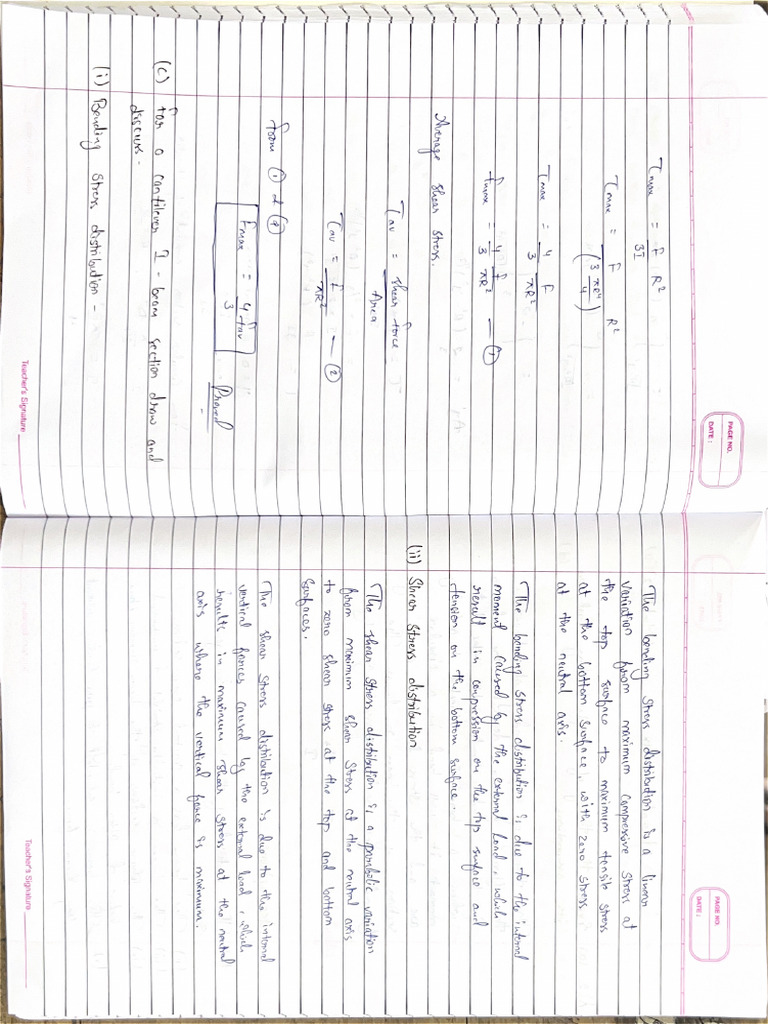 PAGE NO.
DATE :
τmax = F R² / 3I
τmax = F R² / (3 πR⁴/4)
τmax = 4/3 F/πR²
fmax = 4/3 F/πR² — ①
Average shear stress.
τav = shear force / Area
τav = F/πR² — ②
from ① & ②
fmax = 4/3 fav Proved
(c) for a cantilever I - beam section draw and
discuss -
(i) Bending stress distribution -
Teacher's Signature
PAGE NO.
DATE :
The bending stress distribution is a linear
variation from maximum compressive stress at
the top surface to maximum tensile stress
at the bottom surface, with zero stress
at the neutral axis.
The bending stress distribution is due to the internal
moment caused by the external load, which
result in compression on the top surface and
tension on the bottom surface.
(ii) Shear stress distribution
The shear stress distribution is a parabolic variation
from maximum shear stress at the neutral axis
to zero shear stress at the top and bottom
surfaces.
The shear stress distribution is due to the internal
vertical forces caused by the external load, which
results in maximum shear stress at the neutral
axis where the vertical force is maximum.
Teacher's Signature